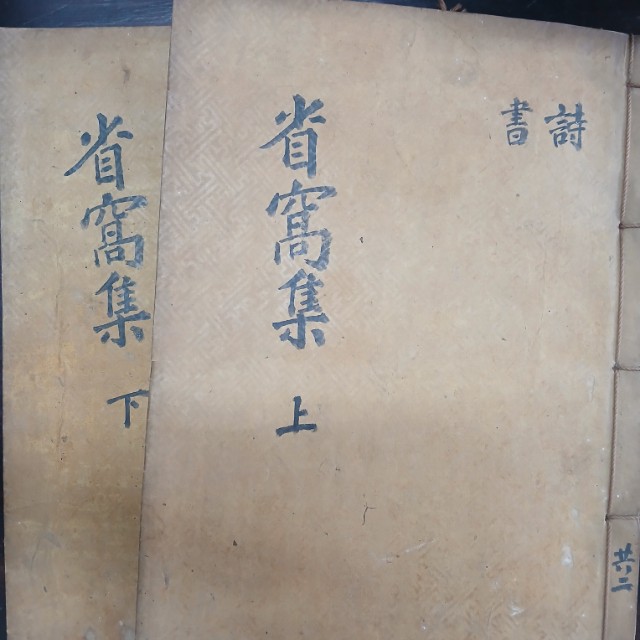 詩
書
省窩集 上
共二
省窩集 下